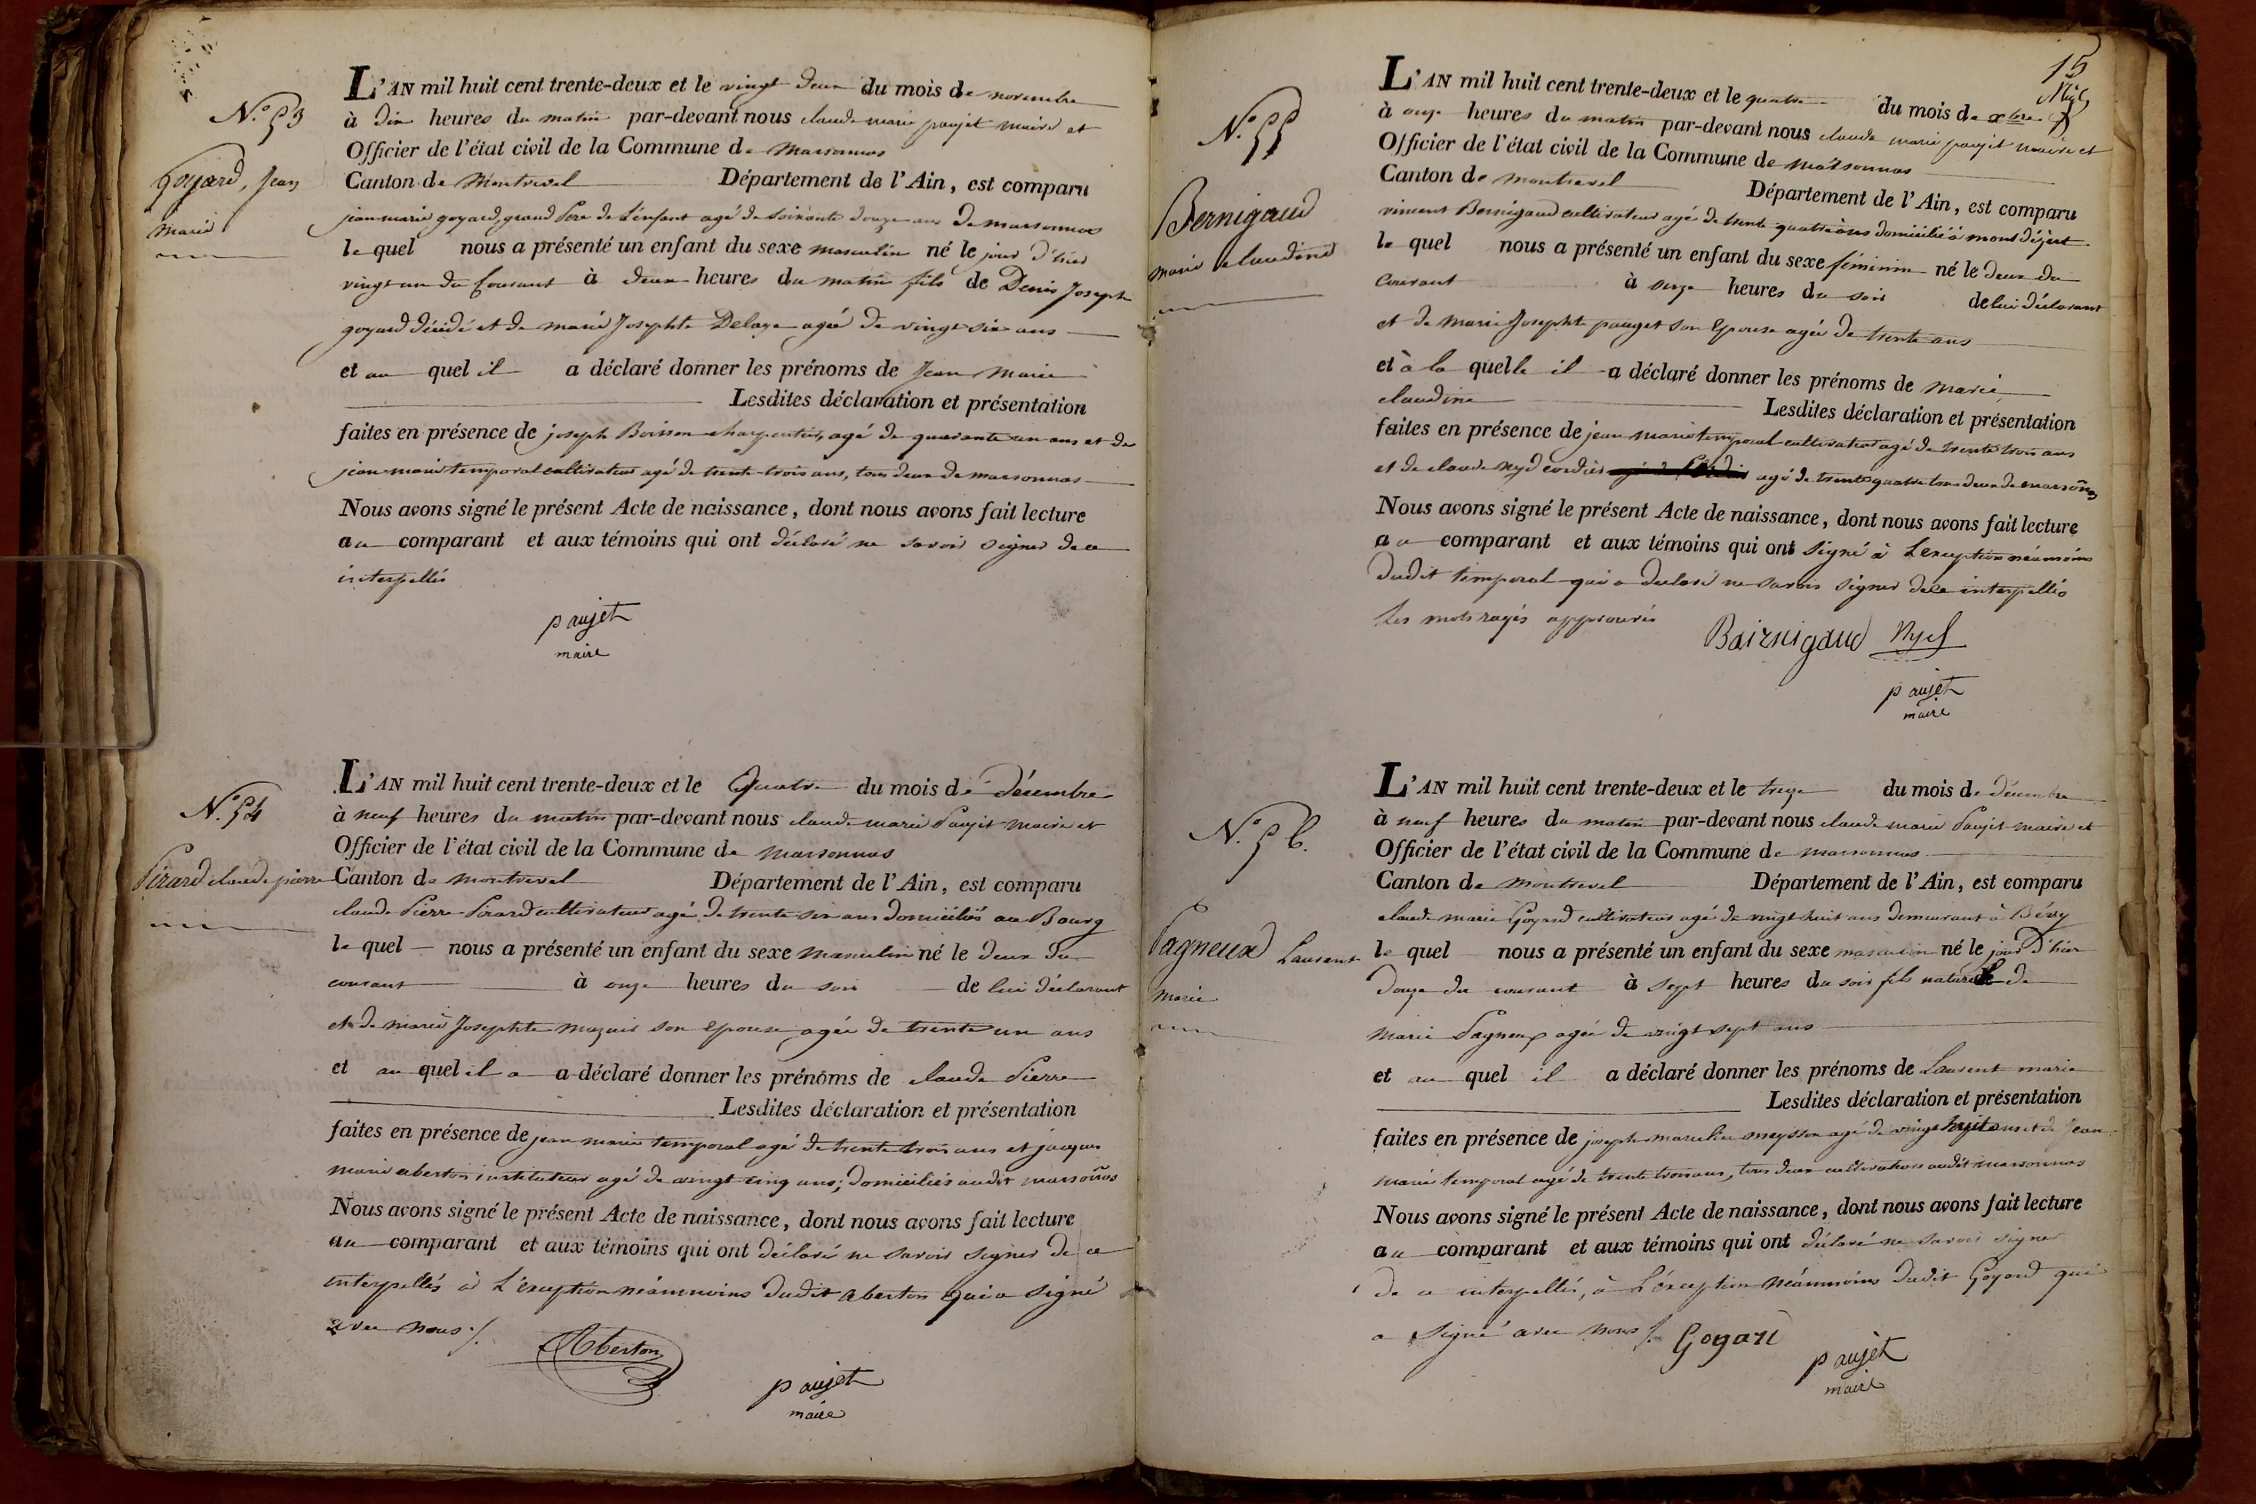 N.º 53
Goyard, Jean
marie
L'AN mil huit cent trente-deux et le vingt deux du mois de novembre
à dix heures du matin par-devant nous claude marie paujet maire et
Officier de l'état civil de la Commune de marsonnas
Canton de Montrevel Département de l'Ain, est comparu
jean marie goyard, grand Pere de L'enfant agé de soixante douze ans de marsonnas
le quel nous a présenté un enfant du sexe masculin né le jour d'hier
vingt un du Courant à deux heures du matin fils de Denis Joseph
goyard décédé et de marie Josephte Delaye agée de vingt six ans
et au quel il a déclaré donner les prénoms de Jean Marie
Lesdites déclaration et présentation
faites en présence de joseph Boisson charpentier, agé de quarante un ans et de
jean marie temporal cultivateur agé de trente-trois ans, tous deux de marsonnas
Nous avons signé le présent Acte de naissance, dont nous avons fait lecture
au comparant et aux témoins qui ont déclaré ne savoir signer de ce
interpellés
paujet
maire
N.º 54
Pirard claude pierre
L'AN mil huit cent trente-deux et le Quatre du mois de décembre
à neuf heures du matin par-devant nous claude marie Paujet maire et
Officier de l'état civil de la Commune de marsonnas
Canton de montrevel Département de l'Ain, est comparu
claude Pierre Pirard cultivateur agé de trente six ans domicilié au Bourg
le quel nous a présenté un enfant du sexe masculin né le deux du
courant à onze heures du soir de lui déclarant
et de marie Josephte mazuir son epouse agée de trente un ans
et au quel il a a déclaré donner les prénoms de claude Pierre
Lesdites déclaration et présentation
faites en présence de jean marie temporal agé de trente trois ans et jacques
marie aberton instituteur agé de vingt cinq ans; domiciliés audit marsoñas
Nous avons signé le présent Acte de naissance, dont nous avons fait lecture
au comparant et aux témoins qui ont déclaré ne savoir signer de ce
interpellés à L'éxception néanmoins dudit aberton qui a signé
avec nous ./.
Aberton
paujet
maire
15
N.º 55
Bernigaud
marie claudine
L'AN mil huit cent trente-deux et le quatre du mois de xbre
à onze heures du matin par-devant nous claude marie paujet maire et
Officier de l'état civil de la Commune de marsonnas
Canton de montrevel Département de l'Ain, est comparu
vincent Bernigaud cultivateur agé de trente quatre ans domicilié à mont déjeut
le quel nous a présenté un enfant du sexe féminin né le deux du
courant à onze heures du soir de lui déclarant
et de marie Josephte pauget son epouse agée de trente ans
et à la quelle il a déclaré donner les prénoms de marie
claudine Lesdites déclaration et présentation
faites en présence de jean marie temporal cultivateur agé de trente trois ans
et de claude nyd cordier agé de trente quatre tous deux de marsoñas
Nous avons signé le présent Acte de naissance, dont nous avons fait lecture
au comparant et aux témoins qui ont signé à L'exception néanmoins
dudit temporal qui a declaré ne savoir signer de ce interpellé
Les mots rayés approuvés
Bairnigaud Nyd
paujet
maire
N.º 56.
Pagneux Laurent
marie
L'AN mil huit cent trente-deux et le treize du mois de décembre
à neuf heures du matin par-devant nous claude marie Paujet maire et
Officier de l'état civil de la Commune de marsonnas
Canton de Montrevel Département de l'Ain, est comparu
claude marie Goyard cultivateur agé de vingt huit ans demeurant à Béviy
le quel nous a présenté un enfant du sexe masculin né le jour d'hier
douze du courant à sept heures du soir fils naturel de
Marie Pagneux agée de vingt sept ans
et au quel il a déclaré donner les prénoms de Laurent marie
Lesdites déclaration et présentation
faites en présence de joseph marcelin meysson agé de vingt huit ans et de Jean
marie temporal agé de trente trois ans, tous deux cultivateurs audit marsonnas
Nous avons signé le présent Acte de naissance, dont nous avons fait lecture
au comparant et aux témoins qui ont déclaré ne savoir signer
de ce interpellés, à L'éxception néanmoins dudit Goyard qui
a signé avec nous ./.
Goyard
paujet
maire